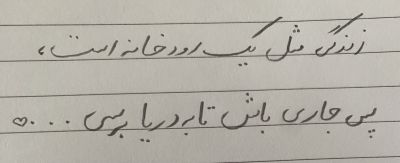 زندگی مثل یک رودخانه است،
پس جاری باش تا به دریا برسی . . . ♡